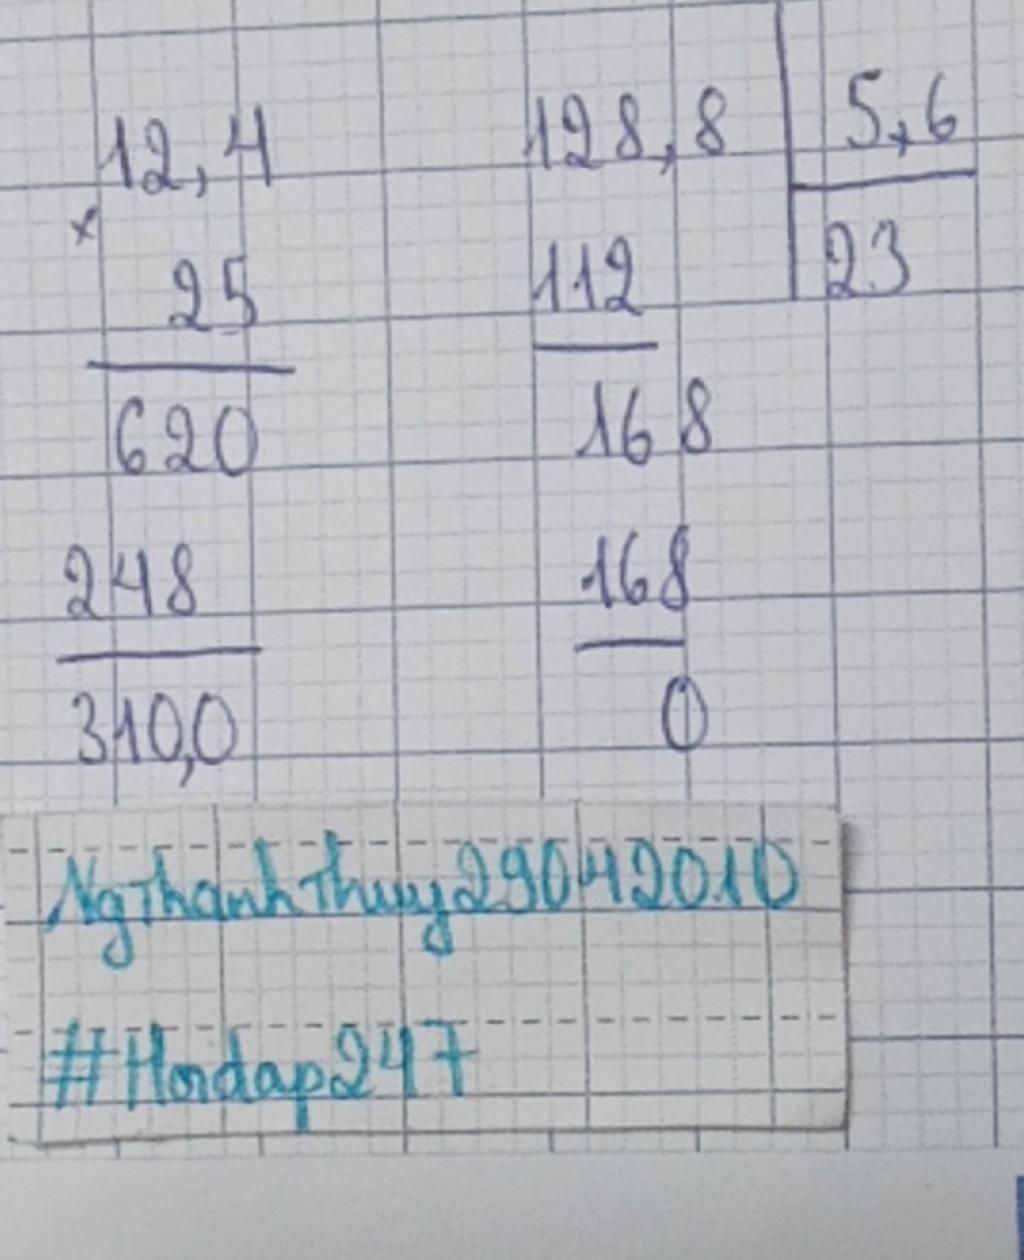 12,4
×
25
620
248
310,0
128,8
5,6
112
23
168
168
0
NgThanhThuy29042010
#Hoidap247